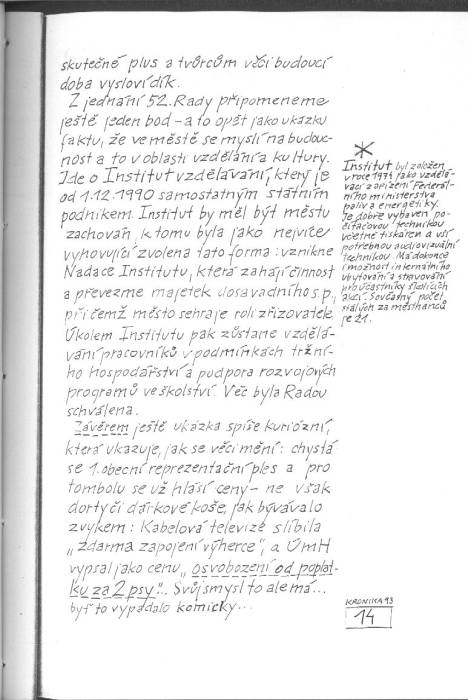 skutečné plus a tvůrcům věci budoucí
doba vysloví dík.
Z jednání 52. Rady připomeneme
ještě jeden bod – a to opět jako ukázku
faktu, že ve městě se myslí na budouc-
nost a to v oblasti vzdělání a kultury.
Jde o Institut vzdělávání, který je
od 1.12.1990 samostatným státním
podnikem. Institut by měl být městu
zachován, k tomu byla jako nejvíce
vyhovující zvolena tato forma: vznikne
Nadace Institutu, která zahájí činnost
a převezme majetek dosavadního s.p.,
při čemž město sehraje roli zřizovatele.
Úkolem Institutu pak zůstane vzdělá-
vání pracovníků v podmínkách tržní-
ho hospodářství a podpora rozvojových
programů ve školství. Věc byla Radou
schválena.
Závěrem ještě ukázka spíše kuriózní,
která ukazuje, jak se věci mění: chystá
se 1. obecní reprezentační ples a pro
tombolu se už hlásí ceny – ne však
dorty či dárkové koše, jak bývávalo
zvykem: Kabelová televize slíbila
„zdarma zapojení výherce", a ÚmH
vypsal jako cenu „osvobození od poplat-
ku za 2 psy"... Svůj smysl to ale má...
byť to vypadalo komicky...
*
Institut byl založen
v roce 1971 jako vzdělá-
vací zařízení Federál-
ního ministerstva
paliv a energetiky.
Je dobře vybaven po-
čítačovou technikou
včetně tiskáren a vší
potřebnou audiovizuální
technikou. Má dokonce
i možnost internátního
ubytování a stravování
pro účastníky školících
akcí. Současný počet
stálých zaměstnanců
je 21.
KRONIKA 93
14